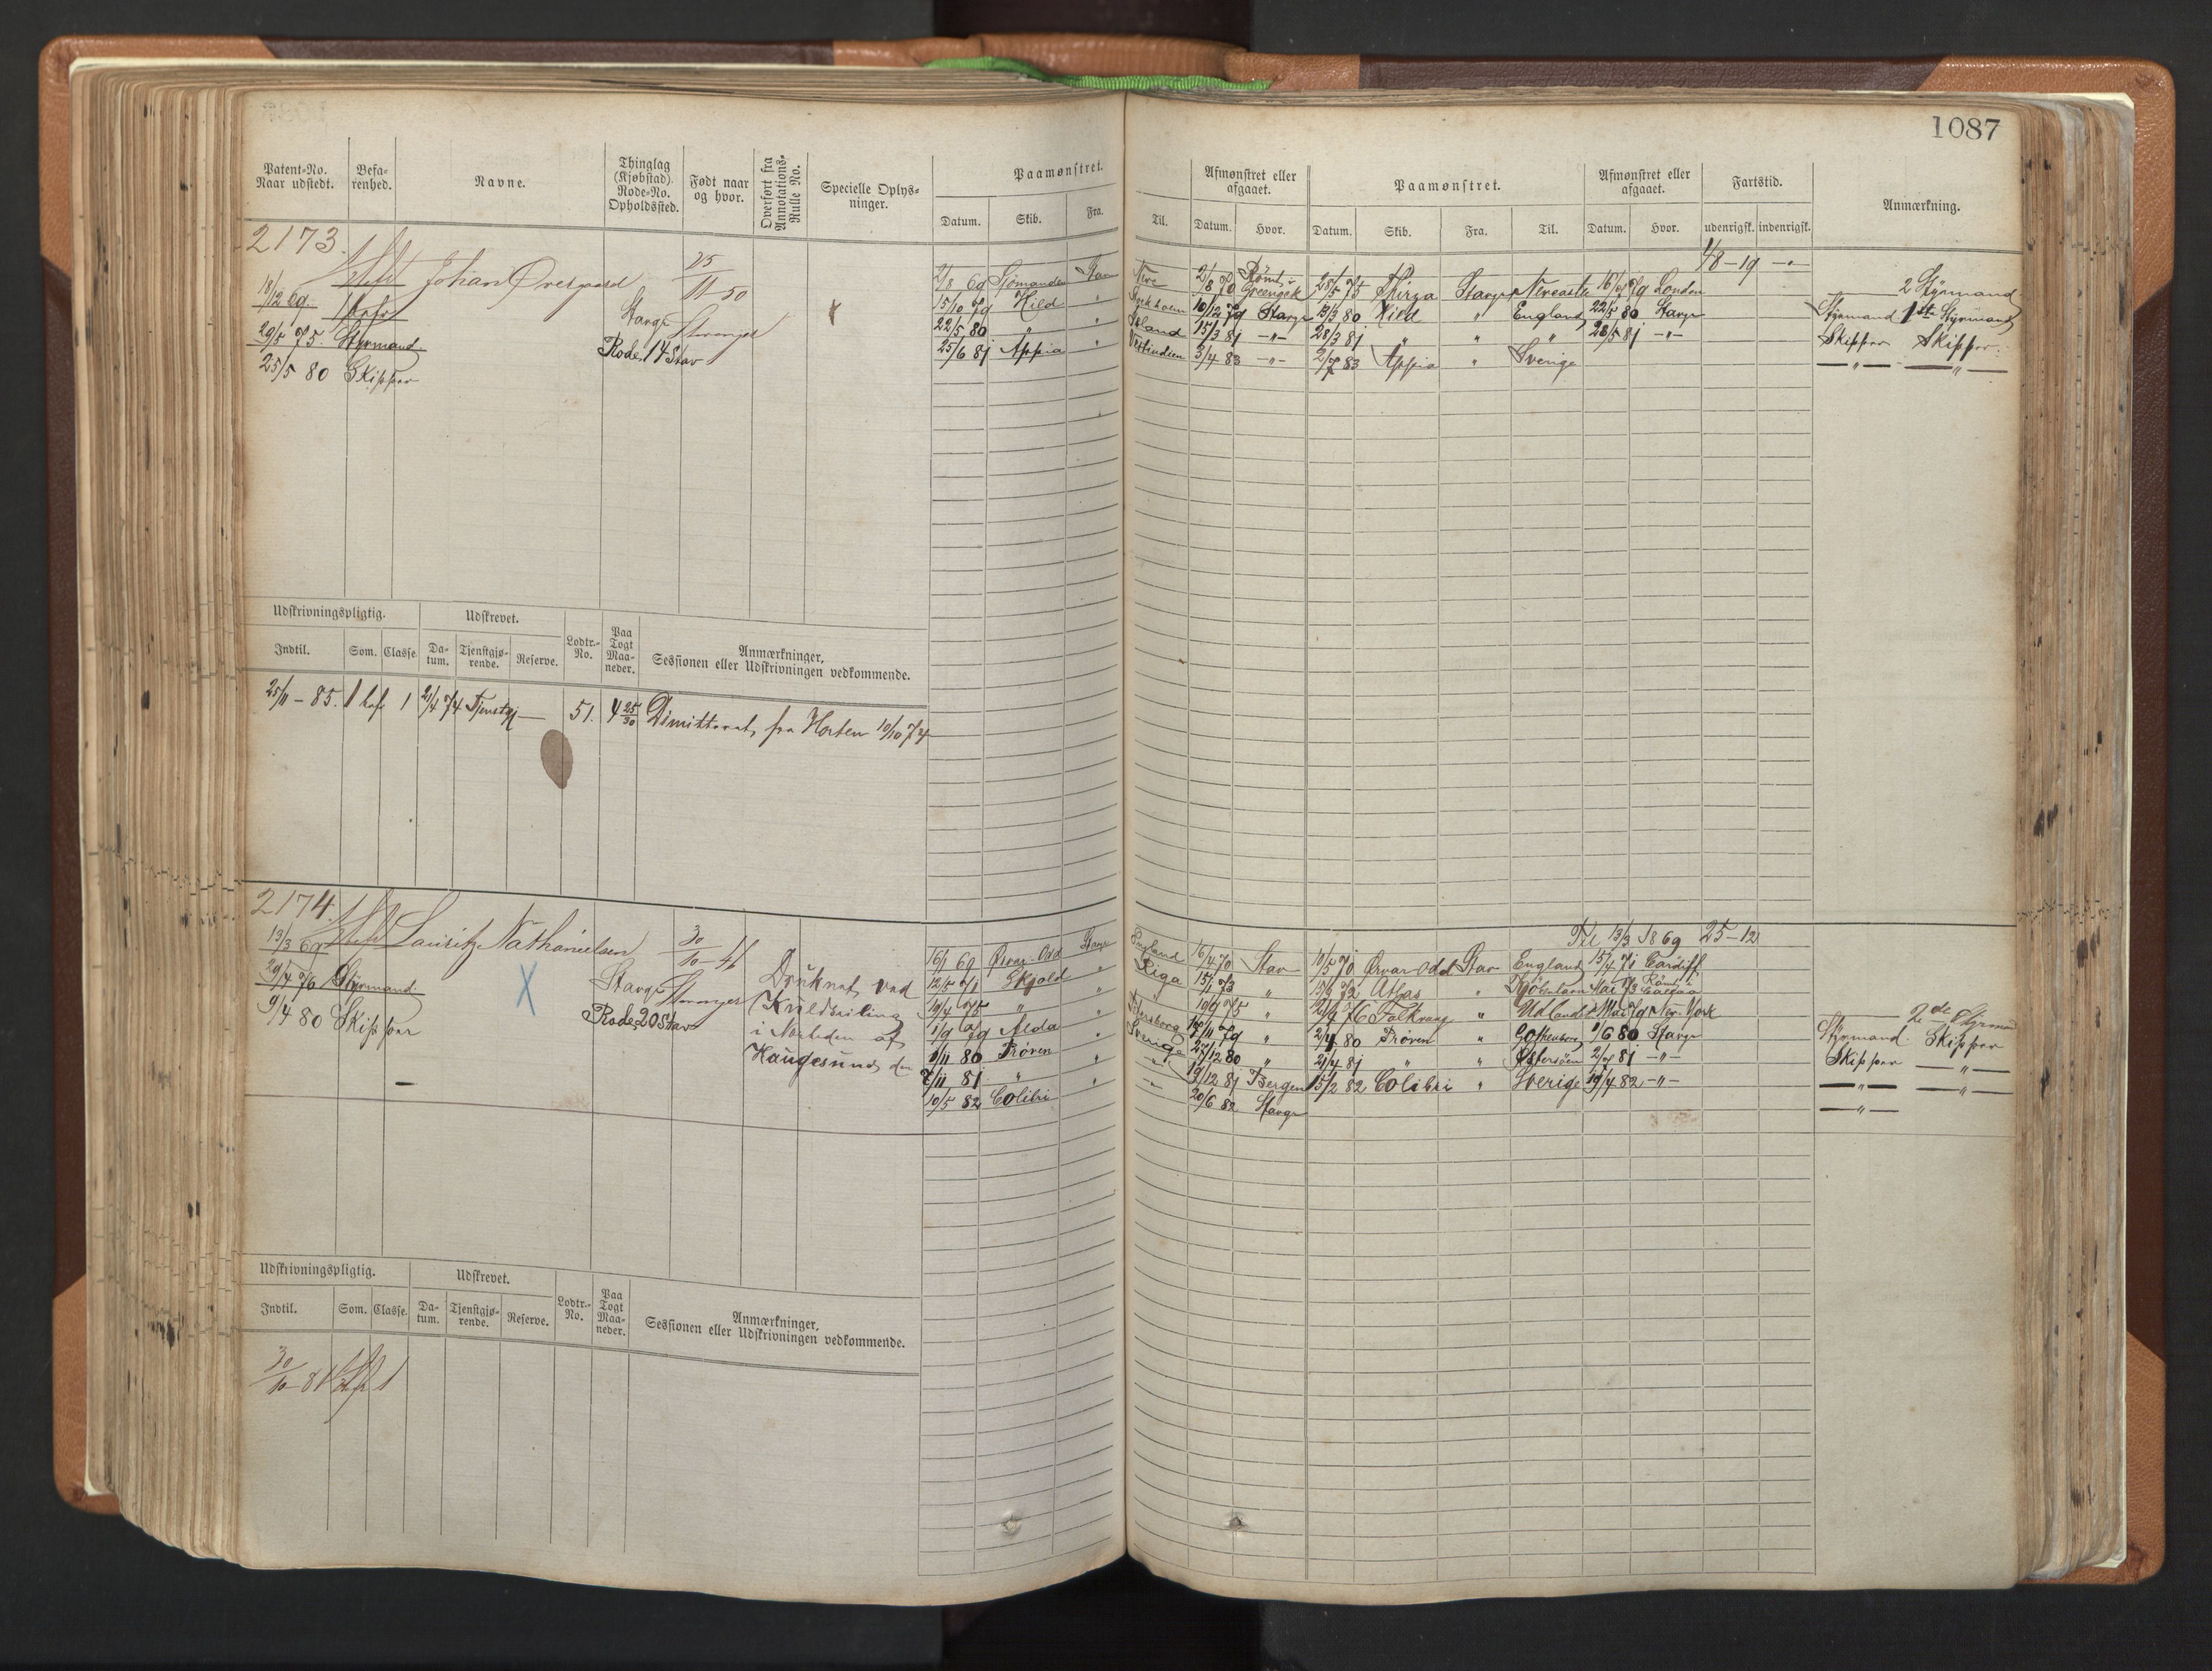 1087
Patent-No. Naar udstedt. Befarenhed. Navne. Thinglag (Kjøbstad). Rode-No. Opholdssted. Født naar og hvor. Overført fra Annotations-Rulle No. Specielle Oplysninger. Paamønstret. Afmønstret eller afgaaet. Paamønstret. Afmønstret eller afgaaet. Fartstid. Anmærkning.
Datum. Skib. Fra. Til. Datum. Hvor. Datum. Skib. Fra. Til. Datum. Hvor. udenrigsk. indenrigsk.
2173.
Johan Overgaard
25/11-50
Stavgr Stavanger
Rode 14 Stav
18/12 69.
29/5 75. Styrmand
23/5 80 Skipper
48-19 -"-
2/8 69 Sjömanden 2/8 70 Römt i 28/5 75 Thirza Stavgr 16/9 79 London 2 Styrmand
15/10 79 Kild " Stockholm 10/12 79 Stavgr 13/3 80 Kild " England 22/5 80 Stavgr Styrmand 1ste Styrmand
22/5 80 " " Island 15/3 81 -"- 28/3 81 " " " 28/5 81 -"- Skipper Skipper
25/6 81 Appia " Vestindien 3/4 83 -"- 2/7 83 Appia " Sverige -"- -"-
Udskrivningspligtig. Udskrevet. Lodtr.-No. Paa Togt Maaneder. Anmærkninger, Sessionen eller Udskrivningen vedkommende.
Indtil. Som. Classe. Datum. Tjenstgjørende. Reserve.
25/11-85. 1 1 21/4 74 Tjenstgj 51. 4 25/30 Dimitteret fra Horten 10/10 74
2174.
Lauritz Nathanielsen
30/10-46
Stavgr Stavanger
Rode 20 Stav
13/3 69
29/4 76 Styrmand
9/4 80 Skipper
X
Druknet ved
Kuldseiling
i Nærheden af
Haugesund den
Til 13/3 1869 25-12
16/1 69 Ørvar-Odd Stavgr England 16/4 70 Stav 10/5 70 Ørvar Odd Stav England 15/4 71 Cardiff
12/5 71 Skjold " Riga 15/1 73 " 13/2 72 Atlas " Mai 73
19/4 75 " " 10/9 75 " 21/4 76 Falkvang " Udlandet Mai 79 New-York 2de Styrmand
1/9 79 Alda " 14/11 79 " 2/4 80 Pröven " Gothenborg 1/6 80 Stavgr Styrmand. Skipper
8/11 80 Pröven " Sverige 27/12 80 " 21/4 81 " " Östersöen 2/9 81 -"- Skipper -"-
7/11 81 " " -"- 19/12 81 Bergen 15/2 82 Colibri " Sverige 19/4 82 -"- -"- -"-
10/5 82 Colibri -"- 20/6 82 Stavgr -"-
Udskrivningspligtig. Udskrevet. Lodtr.-No. Paa Togt Maaneder. Anmærkninger, Sessionen eller Udskrivningen vedkommende.
Indtil. Som. Classe. Datum. Tjenstgjørende. Reserve.
30/10-81 1